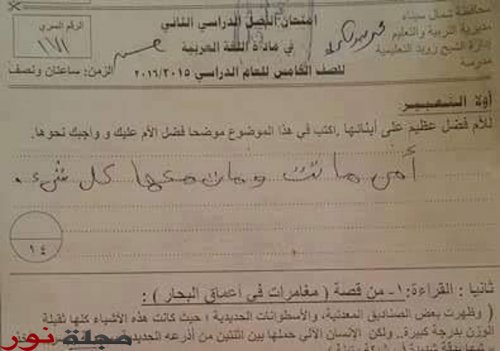 محافظة شمال سيناء
مديرية التربية والتعليم
إدارة الشيخ زويد التعليمية
مدرسة
امتحان الفصل الدراسي الثاني
في مادة اللغة العربية
للصف الخامس للعام الدراسي ٢٠١٦/٢٠١٥
الرقم السري
الزمن: ساعتان ونصف
أولا التعبير:
للأم فضل عظيم على أبنائها, اكتب في هذا الموضوع موضحا فضل الأم عليك و واجبك نحوها.
أمي ماتت ومات معها كل شيء.
١٤
ثانيا: القراءة: ١- من قصة ( مغامرات في أعماق البحار ):
( وظهرت بعض الصناديق المعدنية, والأسطوانات الحديدية ; حيث كانت هذه الأشياء كلها ثقيلة
الوزن بدرجة كبيرة, ولكن الإنسان الآلي حملها بين اثنتين من أذرعه الحديد
مجلة نور